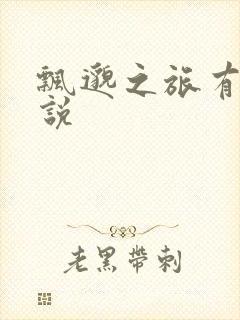 飄邈之旅有
說
老黑帶刺